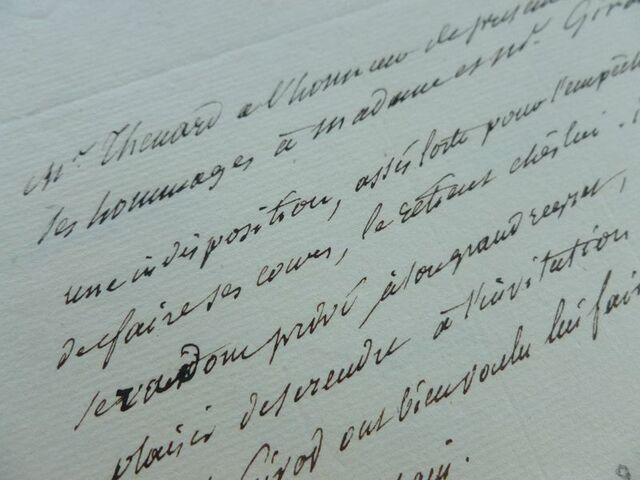 Mr. Thenard a l'honneur de présen
ses hommages à Madame et Mr. Giro
une indisposition, assés forte pour l'empêch
de faire ses cours, le retient chés lui.
se voit donc privé à son grand regret,
plaisir de se rendre à l'invitation
Girod ont bien voulu lui fair